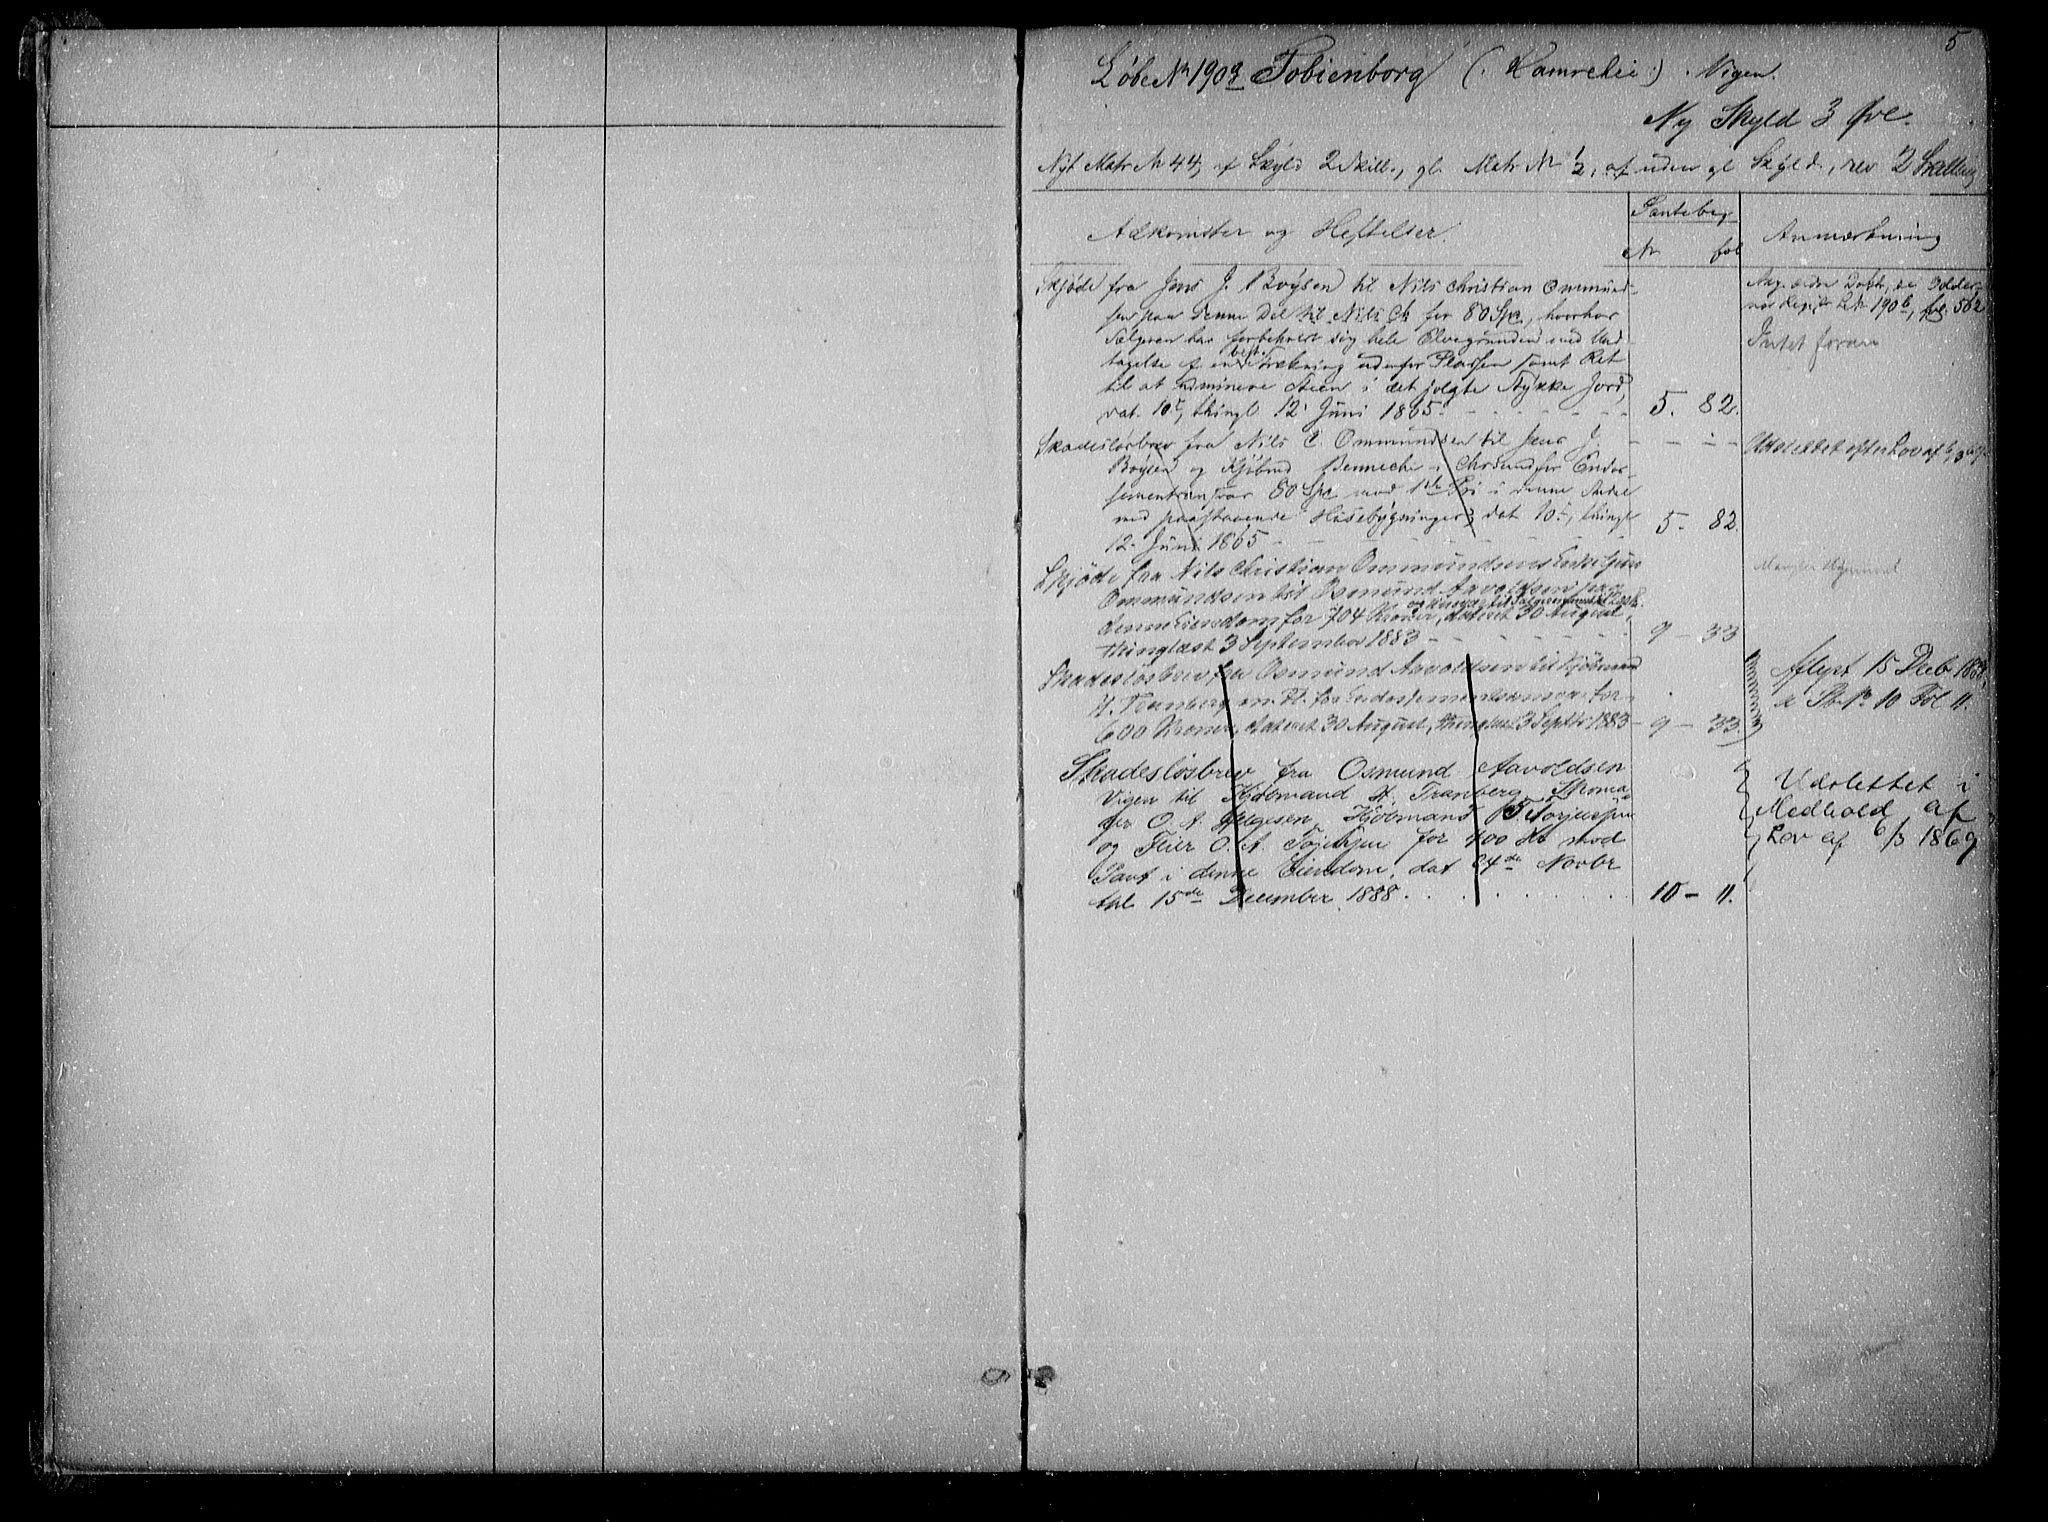 5
Løbe № 190 Tobienborg (: Kamrehei :) . Vigen.
Ny Skyld 3 Øre.
Nyt Matr № 44, af Skyld 2 Skill., gl. Matr № 1/2, af uden gl Skyld, rev 2 Skilling
Pantebog
Adkomster og Heftelser. Anmærkning
№ fol
Skjøde fra Jens J. Boysen til Nils Christian Ommund-
sen paa denne Del til Nils Ch for 80 Spd, hvorhos
Sælgeren har forbeholdt sig hele Elvegrunden med Und-
tagelse af en best. Strækning udenfor Pladsen samt Ret
til at udminere Steen i det solgte Stykke Jord,
dat. 10., thingl. 12. Juni 1865. 5. 82.
ældre Dok, se
Regist. L№ 190, fol. 562
Intet foran
Skadesløsbrev fra Nils C. Ommundsen til Jens J.
Boysen og Kjøbmd Benneche i Chrsand for Endos-
sementsansvar 80 Spd mod 1ste Pri i denne Andel
med paastaaende Huusebygninger, dat 10., thingl
12. Juni 1865 5. 82.
Udslettet efter Lov af
Skjøde fra Nils Christian Ommundsens Enke
Ommundsen til Osmund Aavoldsen paa
denne Eiendom for 704 Kroner, dateret 30 August,
thinglæst 3 September 1883 9 – 33
Skadesløsbrev fra Osmund Aavoldsen til Kjøbmand
H. Tranberg m. Fl. for Endossementsansvar for
600 Kroner, dateret 30 August, thinglæst 3 Septbr 1883 – 9 – 33
Aflyst 15 Decb 1888,
Pb № 10 Fol 11.
Skadesløsbrev fra Osmund Aavoldsen
Vigen til Kjøbmand H. Tranberg, Skoma-
ger O. A. Helgesen, Kjøbmand Torjuspn
og Feier O. A. for 400 Kr mod
Pant i denne Eiendom, dat 24de Novbr
tgl. 15de December 1888. 10 – 11.
Udslettet i
Medhold af
Lov af 6/3 1869